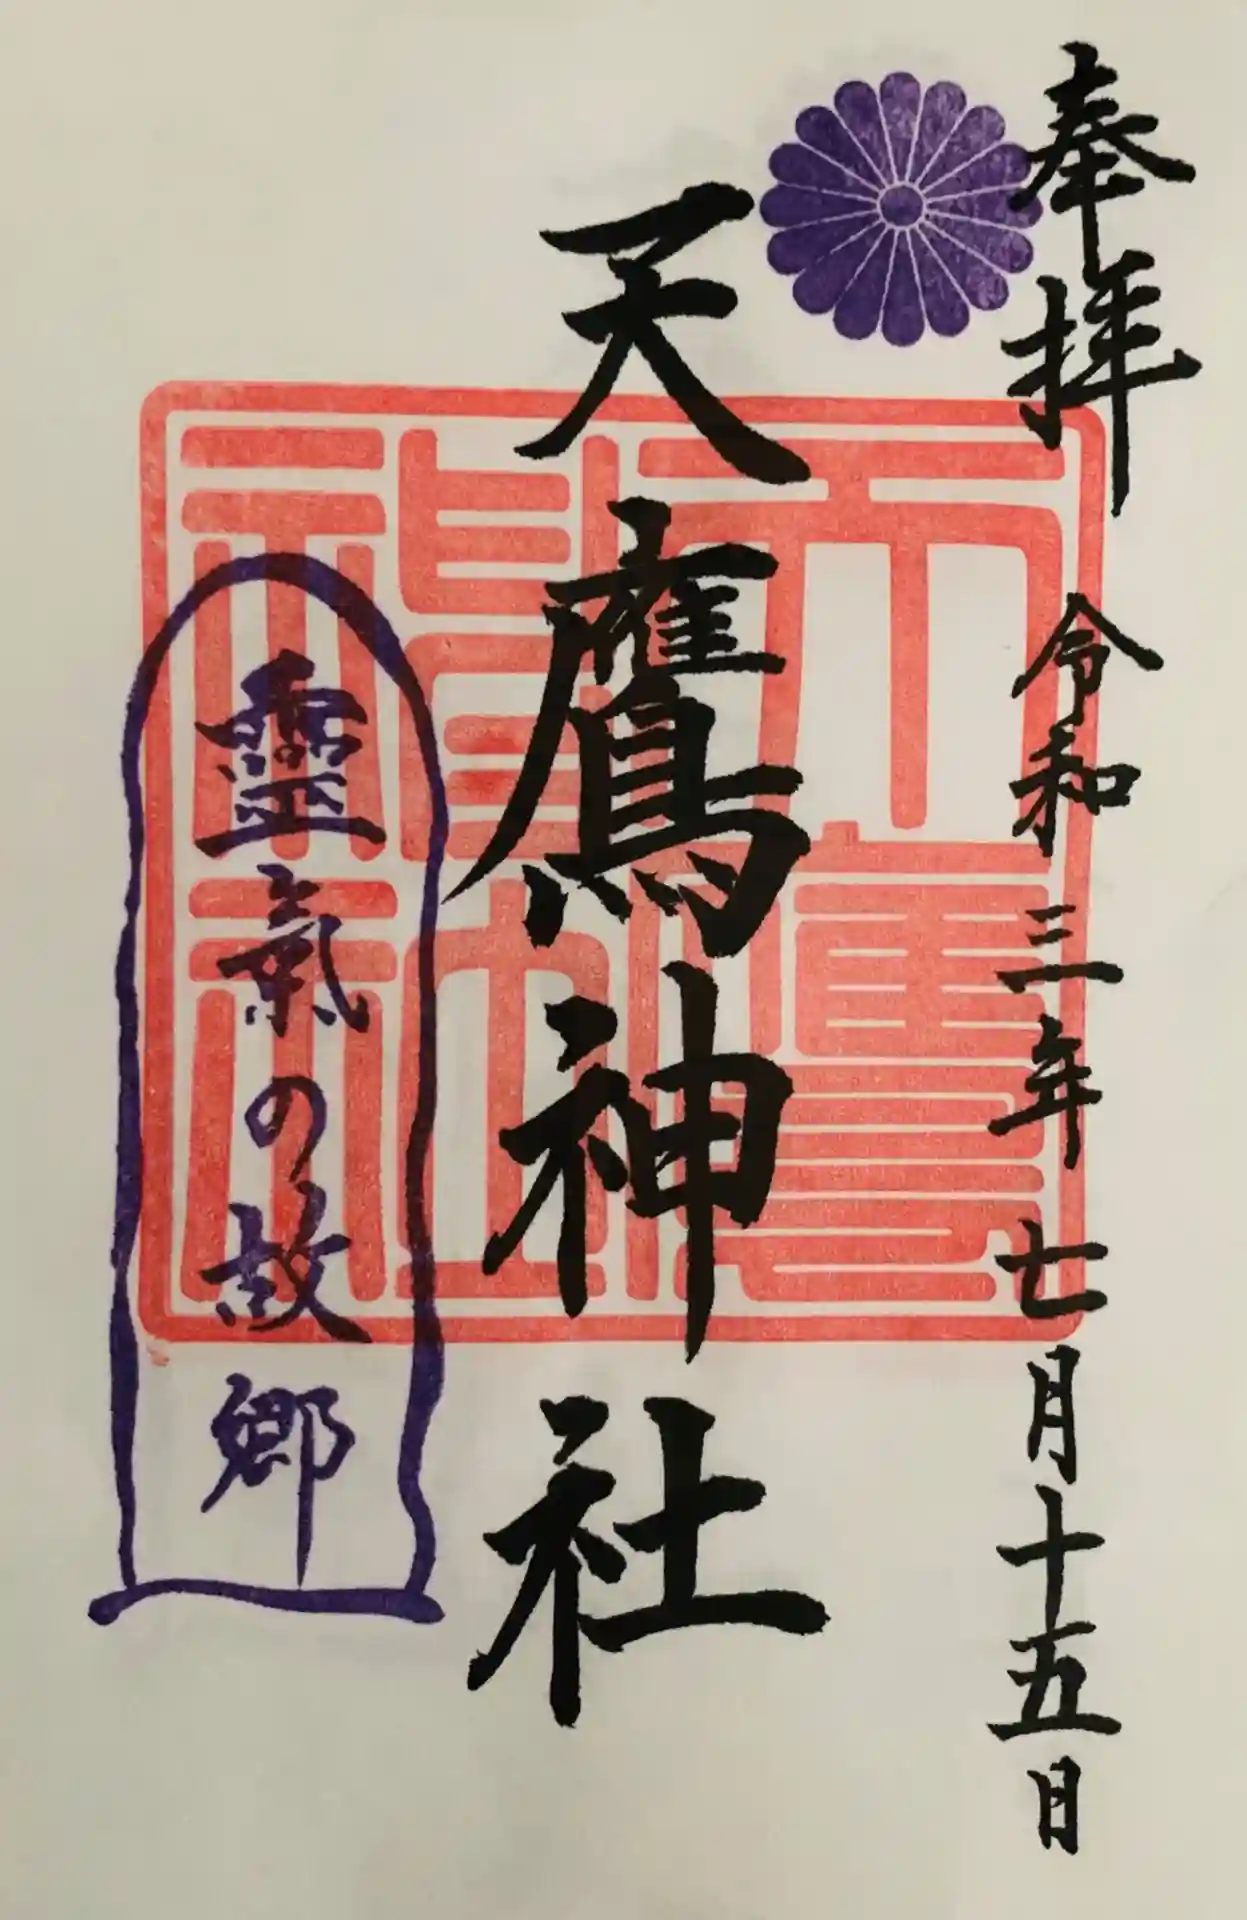 奉拝
令和三年七月十五日
天鷹神社
靈氣の故郷
天鷹
神社